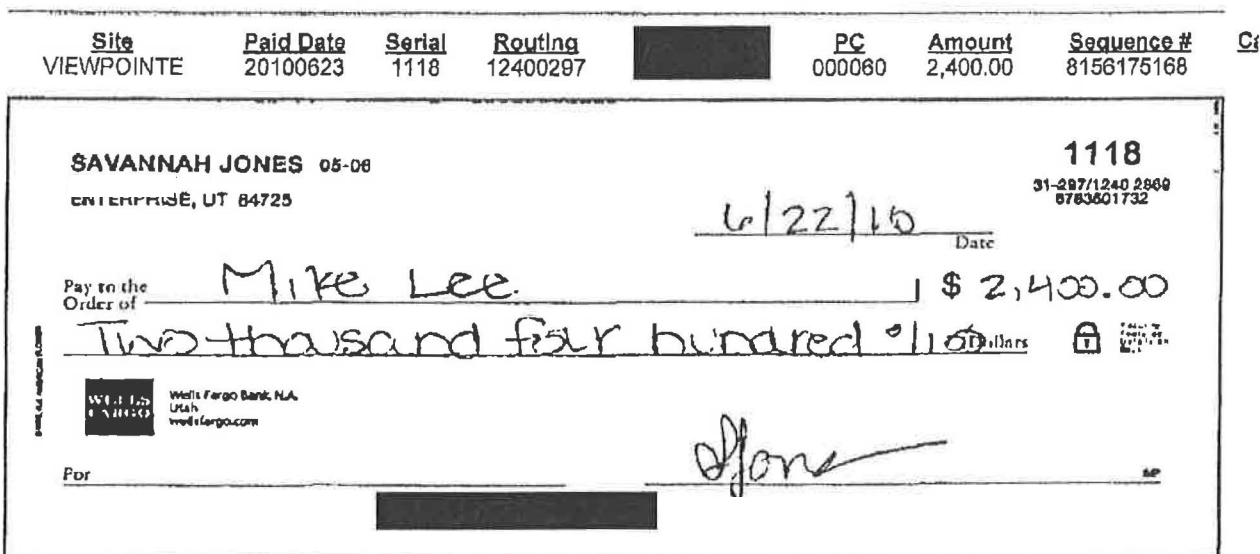 Site Paid Date Serial Routing PC Amount Sequence #
VIEWPOINTE 20100623 1118 12400297 000060 2,400.00 8156175168
SAVANNAH JONES 05-06
ENTERPRISE, UT 84725
1118
31-297/1240 2869
6783601732
6/22/10
Date
Pay to the
Order of Mike Lee $ 2,400.00
Two thousand four hundred 0/100 Dollars
WELLS
FARGO
Wells Fargo Bank, N.A.
Utah
wellsfargo.com
For SJones
MP